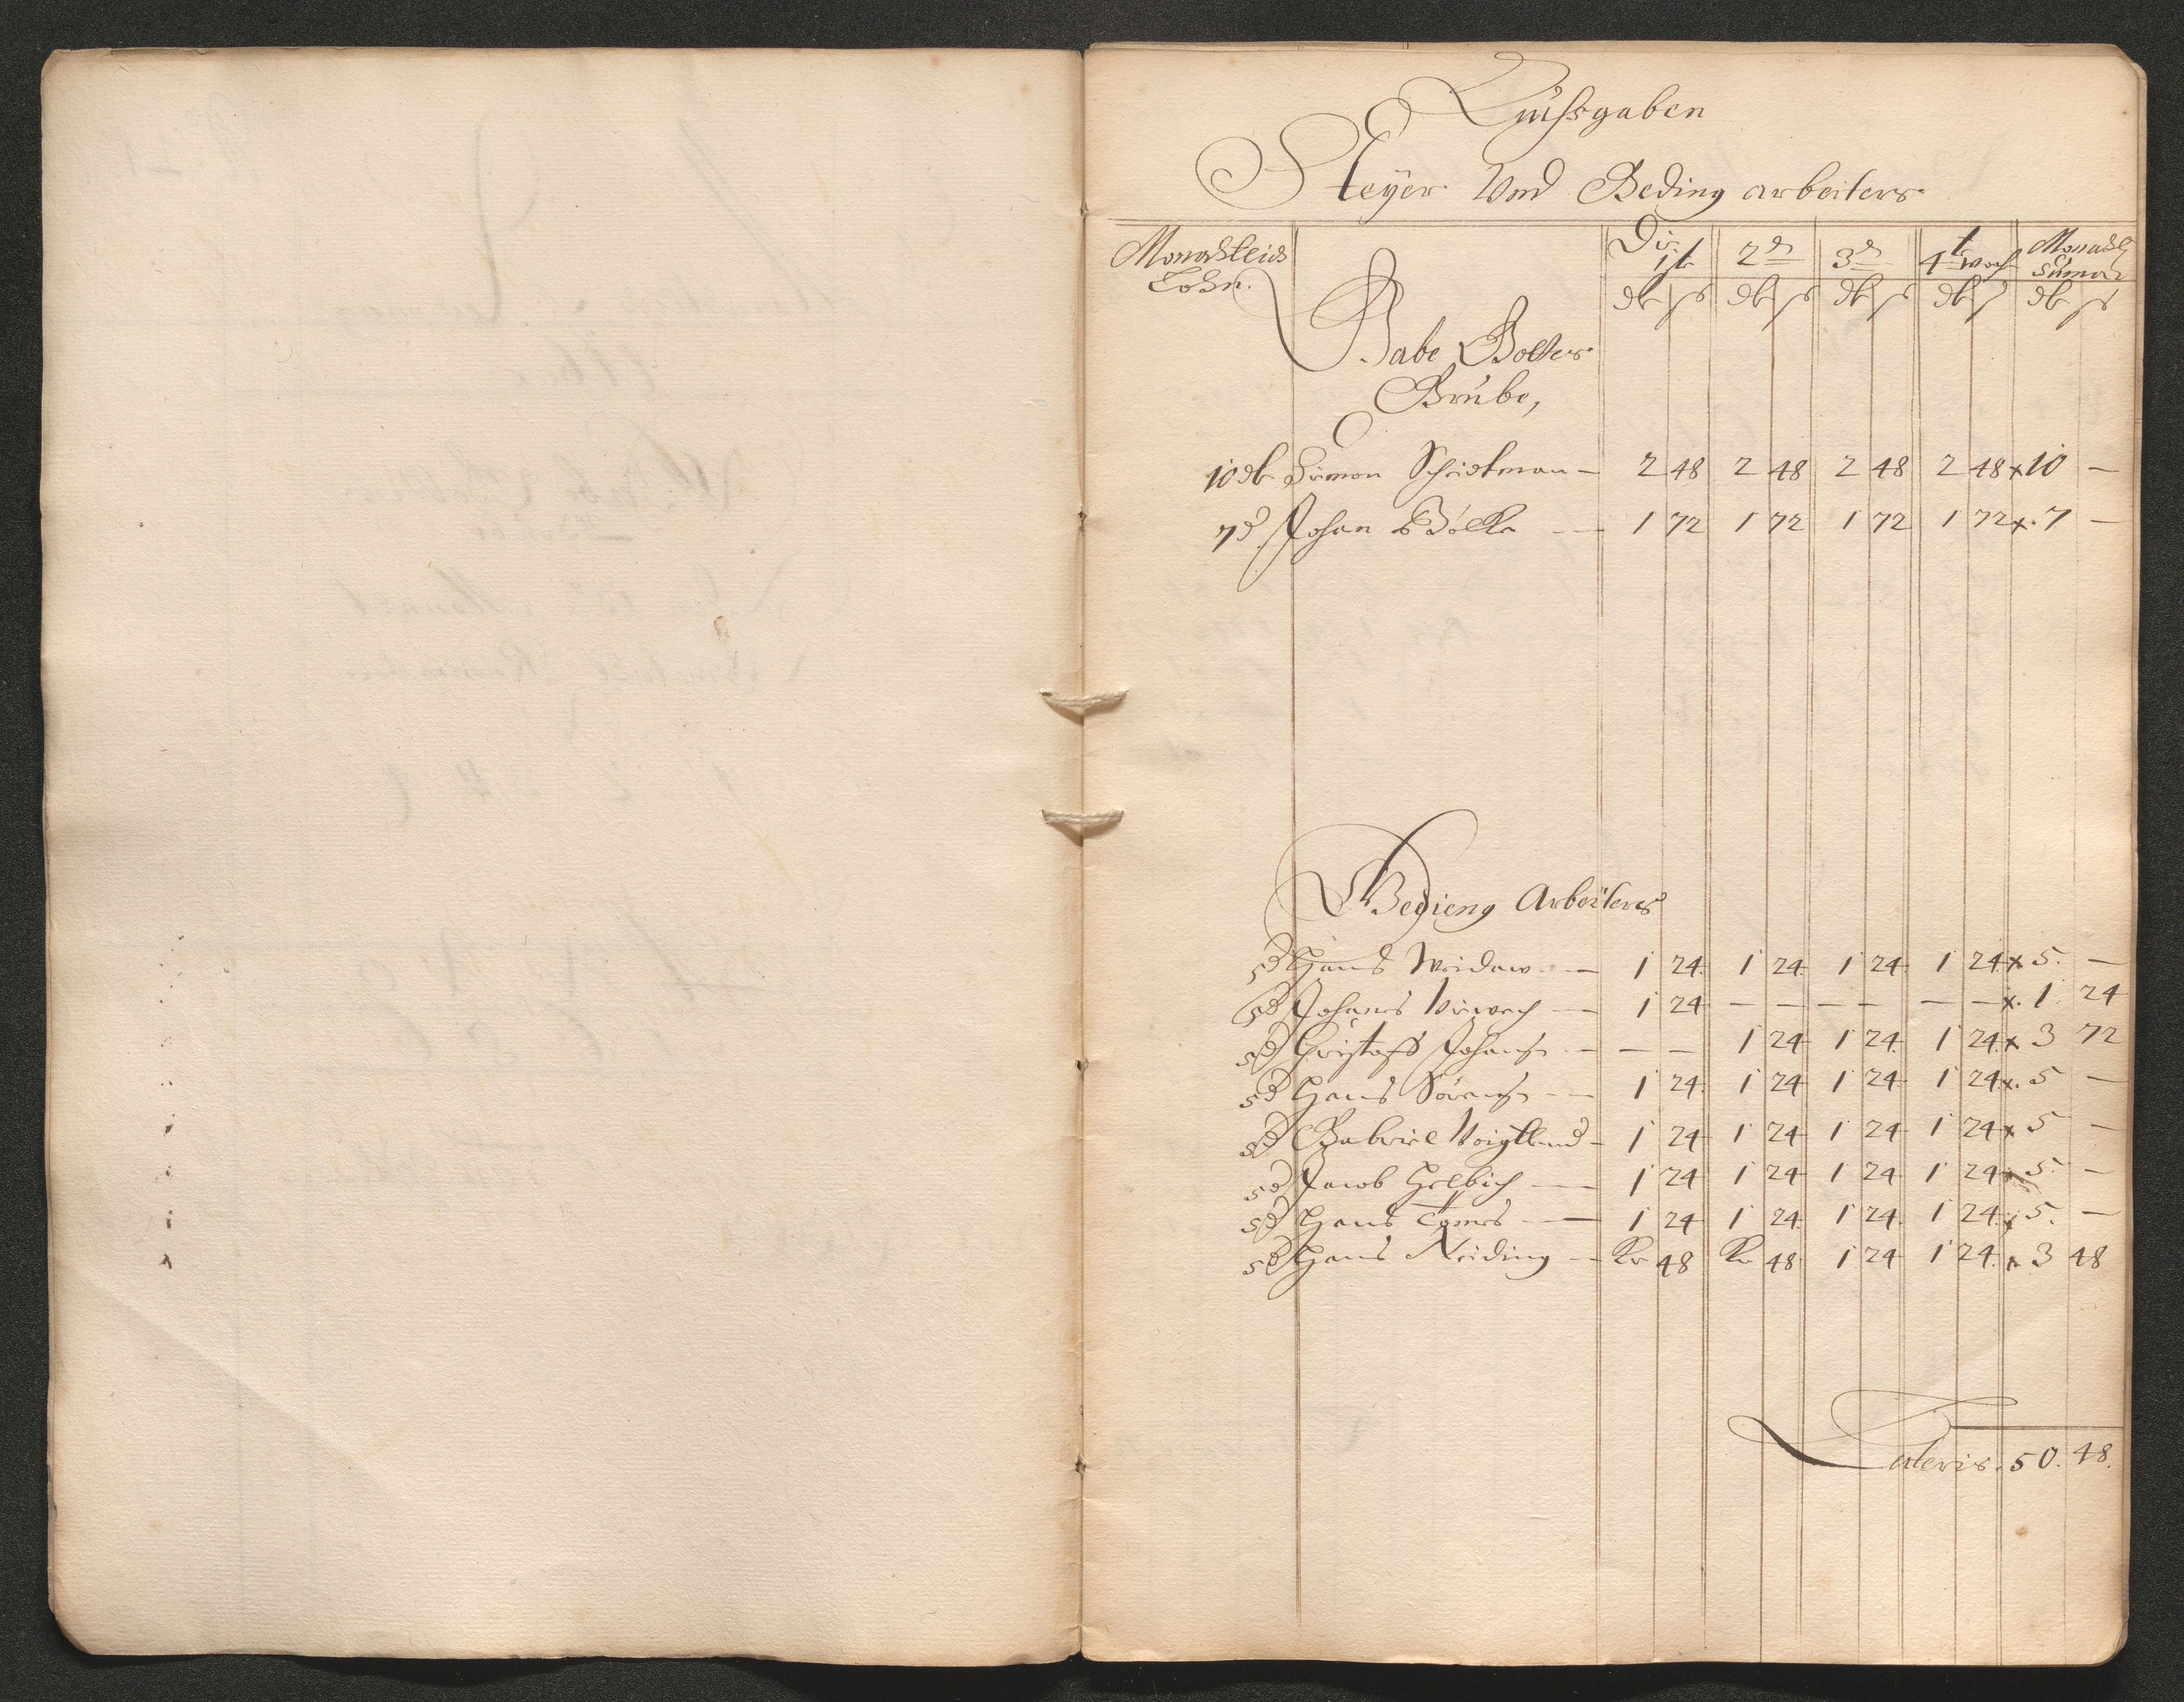 Auhsgaben
Steyer Und Beding arbeiters
Monahtlich Lohn. Die 1ste 2d 3d 4te woch Monahtl Suma
Gabe Gottes
Grube,
10 Simon Schichtman — 2 48 2 48 2 48 2 48 x 10 —
7 Johan Bölke — 1 72 1 72 1 72 1 72 x. 7 —
Bedieng Arbeiters
5 Hans Weidaw — 1 24 1 24 1 24 1 24 x 5. —
5 Johans — 1 24 — — — — — — x. 1. 24
5 Cristoff Johans — — — 1 24 1 24 1 24 x 3 72
5 Hans Sörens — 1 24 1 24 1 24 1 24 x. 5 —
5 Gabriel Voigtland — 1 24 1 24 1 24 1 24 x 5 —
5 Jacob Helbich — 1 24 1 24 1 24 1 24 x 5. —
5 Hans — 1 24 1 24 1 24 1 24 x 5. —
5 Hans Neiding — Kr 48 Kr 48 1 24 1 24 x 3 48
Lateris. 50. 48.